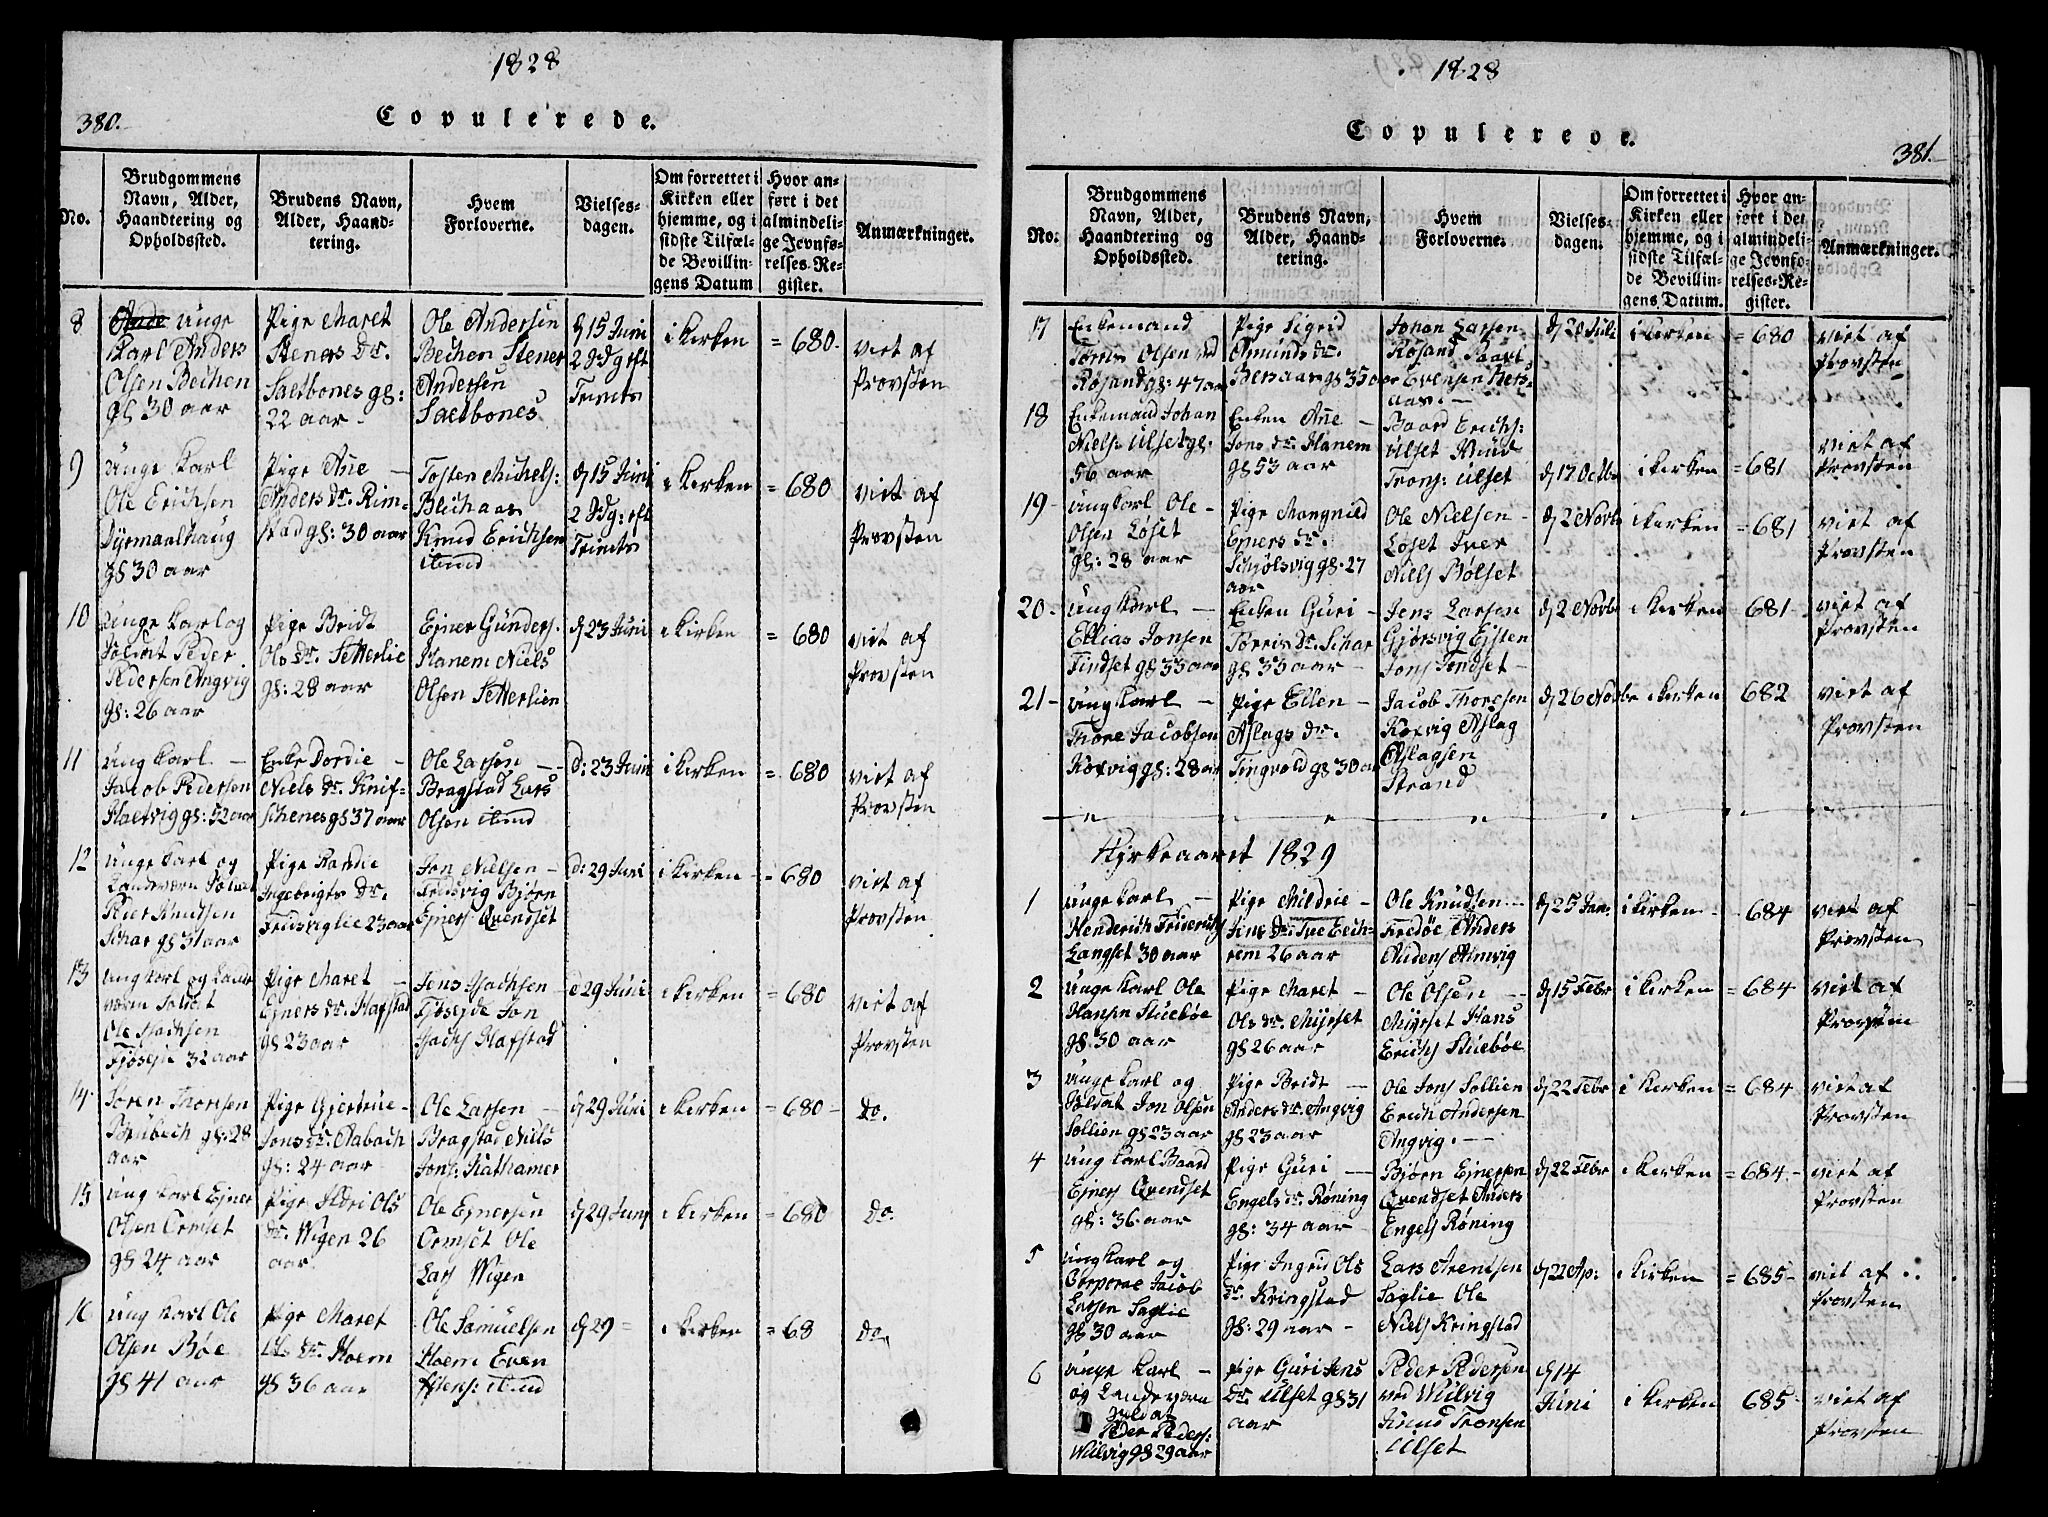 1828
380.
Copulerede.
No.
Brudgommens Navn, Alder, Haandtering og Opholdssted.
Brudens Navn, Alder, Haandtering.
Hvem Forloverne.
Vielsesdagen.
Om forrettet i Kirken eller hjemme, og i sidste Tilfælde Bevillingens Datum
Hvor anført i det almindelige Jevnførelses-Register.
Anmærkninger.
8
unge Karl Anders Olsen Bechen gs 30 aar
Pige Maret Steners Dr. Saetbones gs: 22 aar
Ole Andersen Bechen Stener Andersen Saetbones
d 15 Juni 2 Sdg eft Trinits
i Kirken
= 680
viet af Provsten
9
Unge Karl Ole Erichsen Dyrmaalhaug gs 30 aar
Pige Ane Anders Dr. Rimstad gs: 30 aar
Tosten Michels: Blechaas Knud Erichsen ibmd
d 15 Juni 2 Sdg: eft Trinits
i Kirken
= 680
viet af Provsten
10
Unge Karl og Soldat Peder Pedersen Angvig gs: 26 aar
Pige Bridt Ols Dr. Setterlie gs: 28 aar
Ejner Gunders. Hanem Niels Olsen Setterlien
d 23 Juni
i Kirken
= 680
viet af Provsten
11
Ung Karl Jacob Pedersen Flatvig gs: 52 aar
Enke Dordie Niels Dr. Knifschenes gs 37 aar
Ole Larsen Bragstad Lars Olsen ibmd
d: 23 Juni
i Kirken
= 680
viet af Provsten
12
Unge Karl og Landeværn Soldat Peder Knudsen Schar gs 31 aar
Pige Randie Ingebrigts Dr. Fredsviglie 23 aar
Jon Nielsen Fredsvig Bjørn Ejners Qvendset
d: 29 Juni
i Kirken
= 680
viet af Provsten
13
Ung Karl og Landeværn Soldat Ole Isachsen Fjøseide 32 aar
Pige Maret Ejners Dr. Hafstad gs 23 aar
Jens Isachsen Fjøseide Jon Isachs Hafstad
d 29 Juni
i Kirken
= 680
viet af Provsten
14
Søren Thoresen Brubech gs: 28 aar
Pige Gjertrue Jons Dr. Aabach gs: 24 aar
Ole Larsen Bragstad Niels Jons: Kathamer
d 29 Juni
i Kirken
= 680
Do.
15
Ung Karl Ejner Olsen Ormset gs 24 aar
Pige Ildri Ols Dr. Wigen 26 aar
Ole Ejnersen Ormset Ole Lars Wigen
d 29 Juni
i Kirken
= 680
Do.
16
Ung Karl Ole Olsen Bøe gs 41 aar
Pige Maret Ols Dr. Hoem gs 36 aar
Ole Samuelsen Hoem Even ibmd
d 29 =
i Kirken
= 68
Do.
1828
Copulerede.
381.
No.
Brudgommens Navn, Alder, Haandtering og Opholdssted.
Brudens Navn, Alder, Haandtering.
Hvem Forloverne.
Vielsesdagen.
Om forrettet i Kirken eller hjemme, og i sidste Tilfælde Bevillingens Datum.
Hvor anført i det almindelige Jevnførelses-Register.
Anmærkninger.
17
Enkemand Tørris Olsen ved Røsand gs: 47 aar
Pige Sigrid Amunds Dr. Bersaas gs 35 aar
Johan Larsen Røsand Evensen Bersaas
d 20 Juli
i Kirken
= 680
viet af Provsten
18
Enkemand Johan Niels: Ulset gs. 56 aar
Enken Ane Jons Dr. Hanem gs 53 aar
Baard Erichs: Ulset Knud Trons: Ulset
d 17 Octbr
i Kirken
= 681
viet af Provsten
19
Ung Karl Ole Olsen Løset gs: 28 aar
Pige Mangnild Ejners Dr. Schjølsvig gs. 27 aar
Ole Nielsen Løset Iver Niels Bølset
d 2 Novbr
i Kirken
= 681
viet af Provsten
20
Ung Karl Ellias Jonsen Tindset gs 33 aar
Enken Guri Tørris Dr. Schar gs 35 aar
Jens Larsen Gjørsvig Ejsten Jons Tindset
d 2 Novbr
i Kirken
= 681
viet af Provsten
21
Ung Karl Thore Jacobsen Koxvig gs: 28 aar
Pige Ellen Aslags Dr. Tingvold gs 30 aar
Jacob Thoresen Koxvig Aslag Aslagsen Strand
d 26 Novbr
i Kirken
682
viet af Provsten
Kirkeaaret 1829
1
Unge Karl Henderich Friderichs Langset 30 aar
Pige Mildrie Jens Dr. Tve Eechrem 26 aar
Ole Knudsen Fredøe Anders Audens Almvig
d 25 Jan:
i Kirken
684
viet af Provsten
2
Unge Karl Ole Hansen Stuebøe gs. 30 aar
Pige Maret Ols Dr. Myrset gs 26 aar
Ole Olsen Myrset Hans Erichs Stuebøe
d 15 Febr
i Kirken
= 684
viet af Provsten
3
Unge Karl og Soldat Jon Olsen Sollien gs 23 aar
Pige Bridt Anders Dr. Angvig gs 23 aar
Ole Jons Sollien Erich Andersen Angvig.
d 22 Febr
i Kirken
= 684
viet af Provsten
4
Ung Karl Baard Ejners Qvendset gs: 36 aar
Pige Guri Engels Dr. Røning gs: 34 aar
Bjørn Ejnersen Qvendset Anders Engels Røning
d 22 Febr
i Kirken
= 684
viet af Provsten
5
Ung Karl og Corporal Jacob Larsen Saglie gs 30 aar
Pige Ingrid Ols Dr. Kringstad gs: 29 aar
Lars Arentsen Saglie Ole Niels Kringstad
d 22 Ap:
i Kirken
= 685
viet af Provsten
6
Unge Karl og Landeværn Soldat Peder Peders: Wulvig gs 29 aar
Pige Guri Jens Dr. Ulset gs 31 aar
Peder Pedersen ved Wulvig Knud Tronsen Ulset
d 14 Juni
i Kirken
685
viet af Provsten